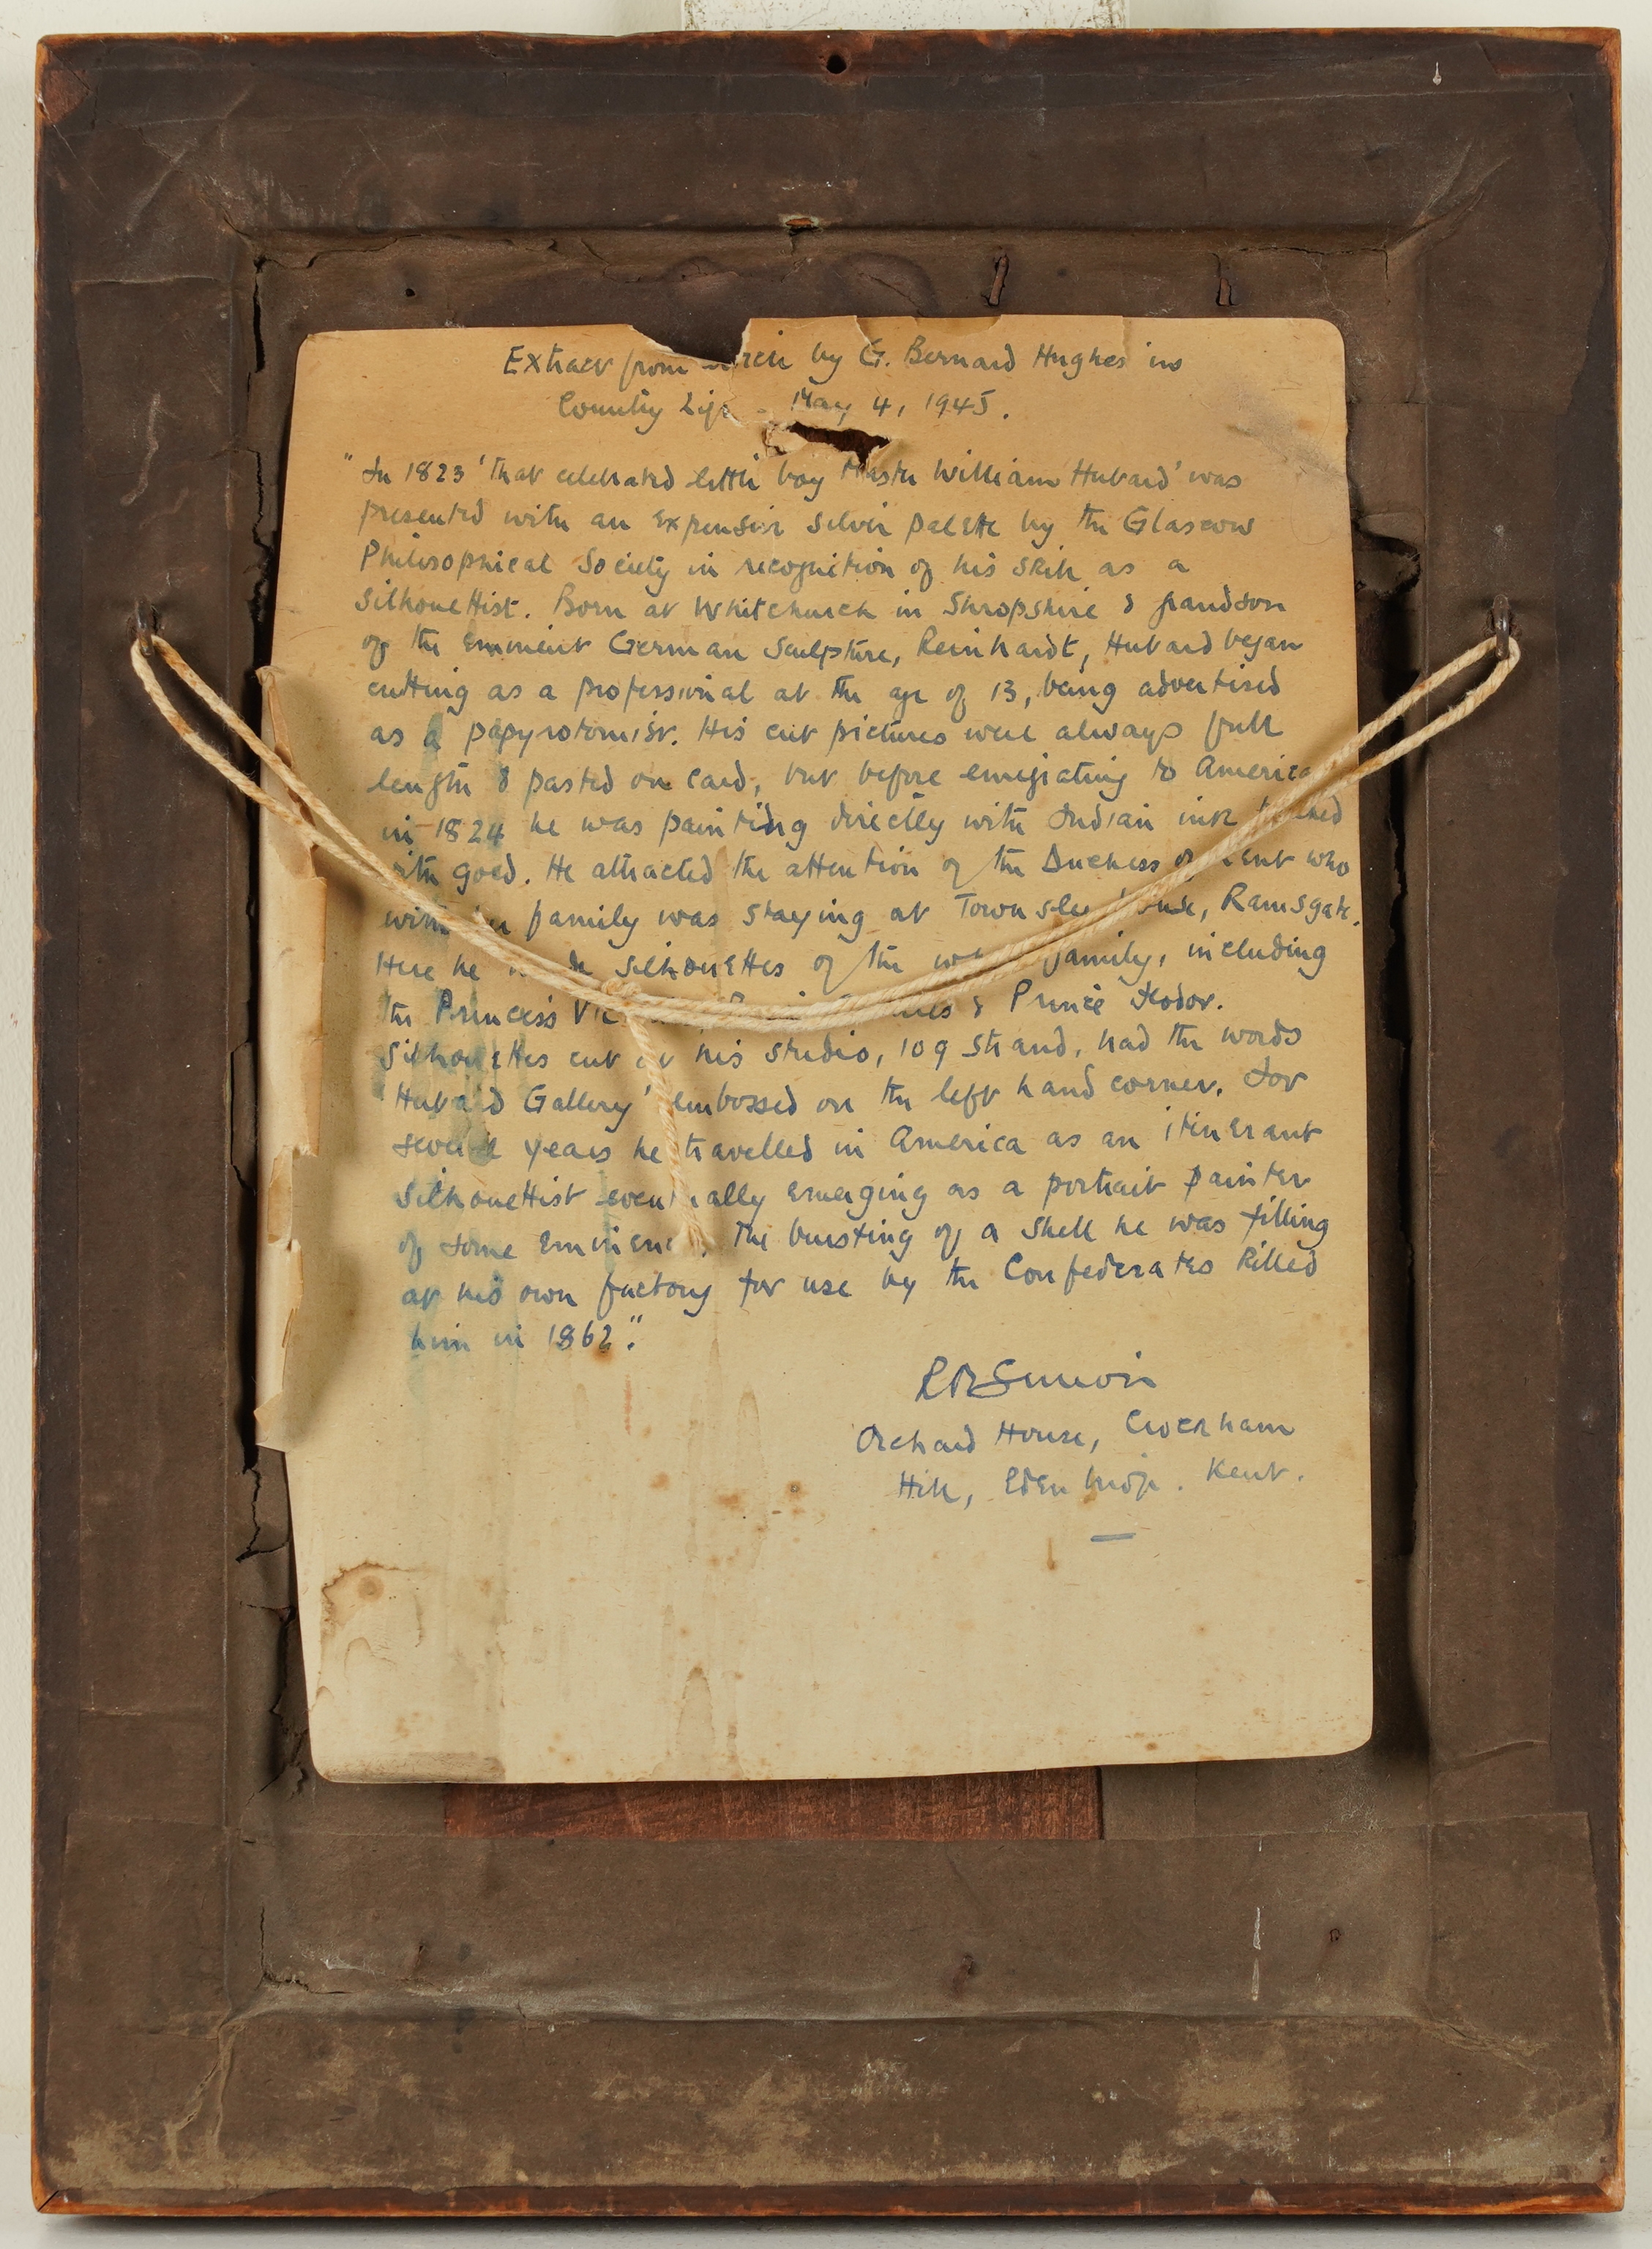 Extract from by G. Bernard Hughes in
Country Life - May 4, 1945.
"In 1823 'that celebrated little boy Master William Hubard' was
presented with an expensive silver palette by the Glasgow
Philosophical Society in recognition of his skill as a
Silhouettist. Born at Whitchurch in Shropshire & grandson
of the Eminent German Sculpture, Reinhardt, Hubard began
cutting as a professional at the age of 13, being advertised
as a papyrotomist. His cut pictures were always full
length & pasted on card, but before emigrating to America
in 1824 he was painting directly with Indian ink
with gold. He attracted the attention of the Duchess of Kent who
with family was staying at Townsley House, Ramsgate.
Here he made Silhouettes of the whole family, including
the Princess & Prince Feodor.
Silhouettes cut at his studio, 109 Strand, had the words
Hubard Gallery' embossed on the left hand corner. For
several years he travelled in America as an itinerant
Silhouettist eventually emerging as a portrait painter
of some Eminence. The bursting of a shell he was filling
at his own factory for use by the Confederates killed
him in 1862."
Orchard House, Crockham
Hill, Edenbridge. Kent.